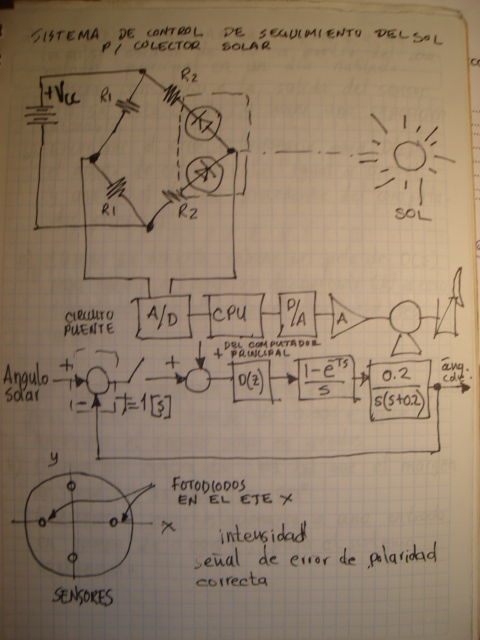 SISTEMA DE CONTROL DE SEGUIMIENTO DEL SOL
P/ COLECTOR SOLAR
+Vcc
R1
R2
R1
R2
SOL
CIRCUITO
PUENTE
A/D
CPU
D/A
A
DEL COMPUTADOR
PRINCIPAL
Angulo
solar
+
-
T=1[s]
+
+
D(z)
1-e^-Ts
s
0.2
s(s+0.2)
áng.
y
x
FOTODIODOS
EN EL EJE X
SENSORES
intensidad
señal de error de polaridad
correcta